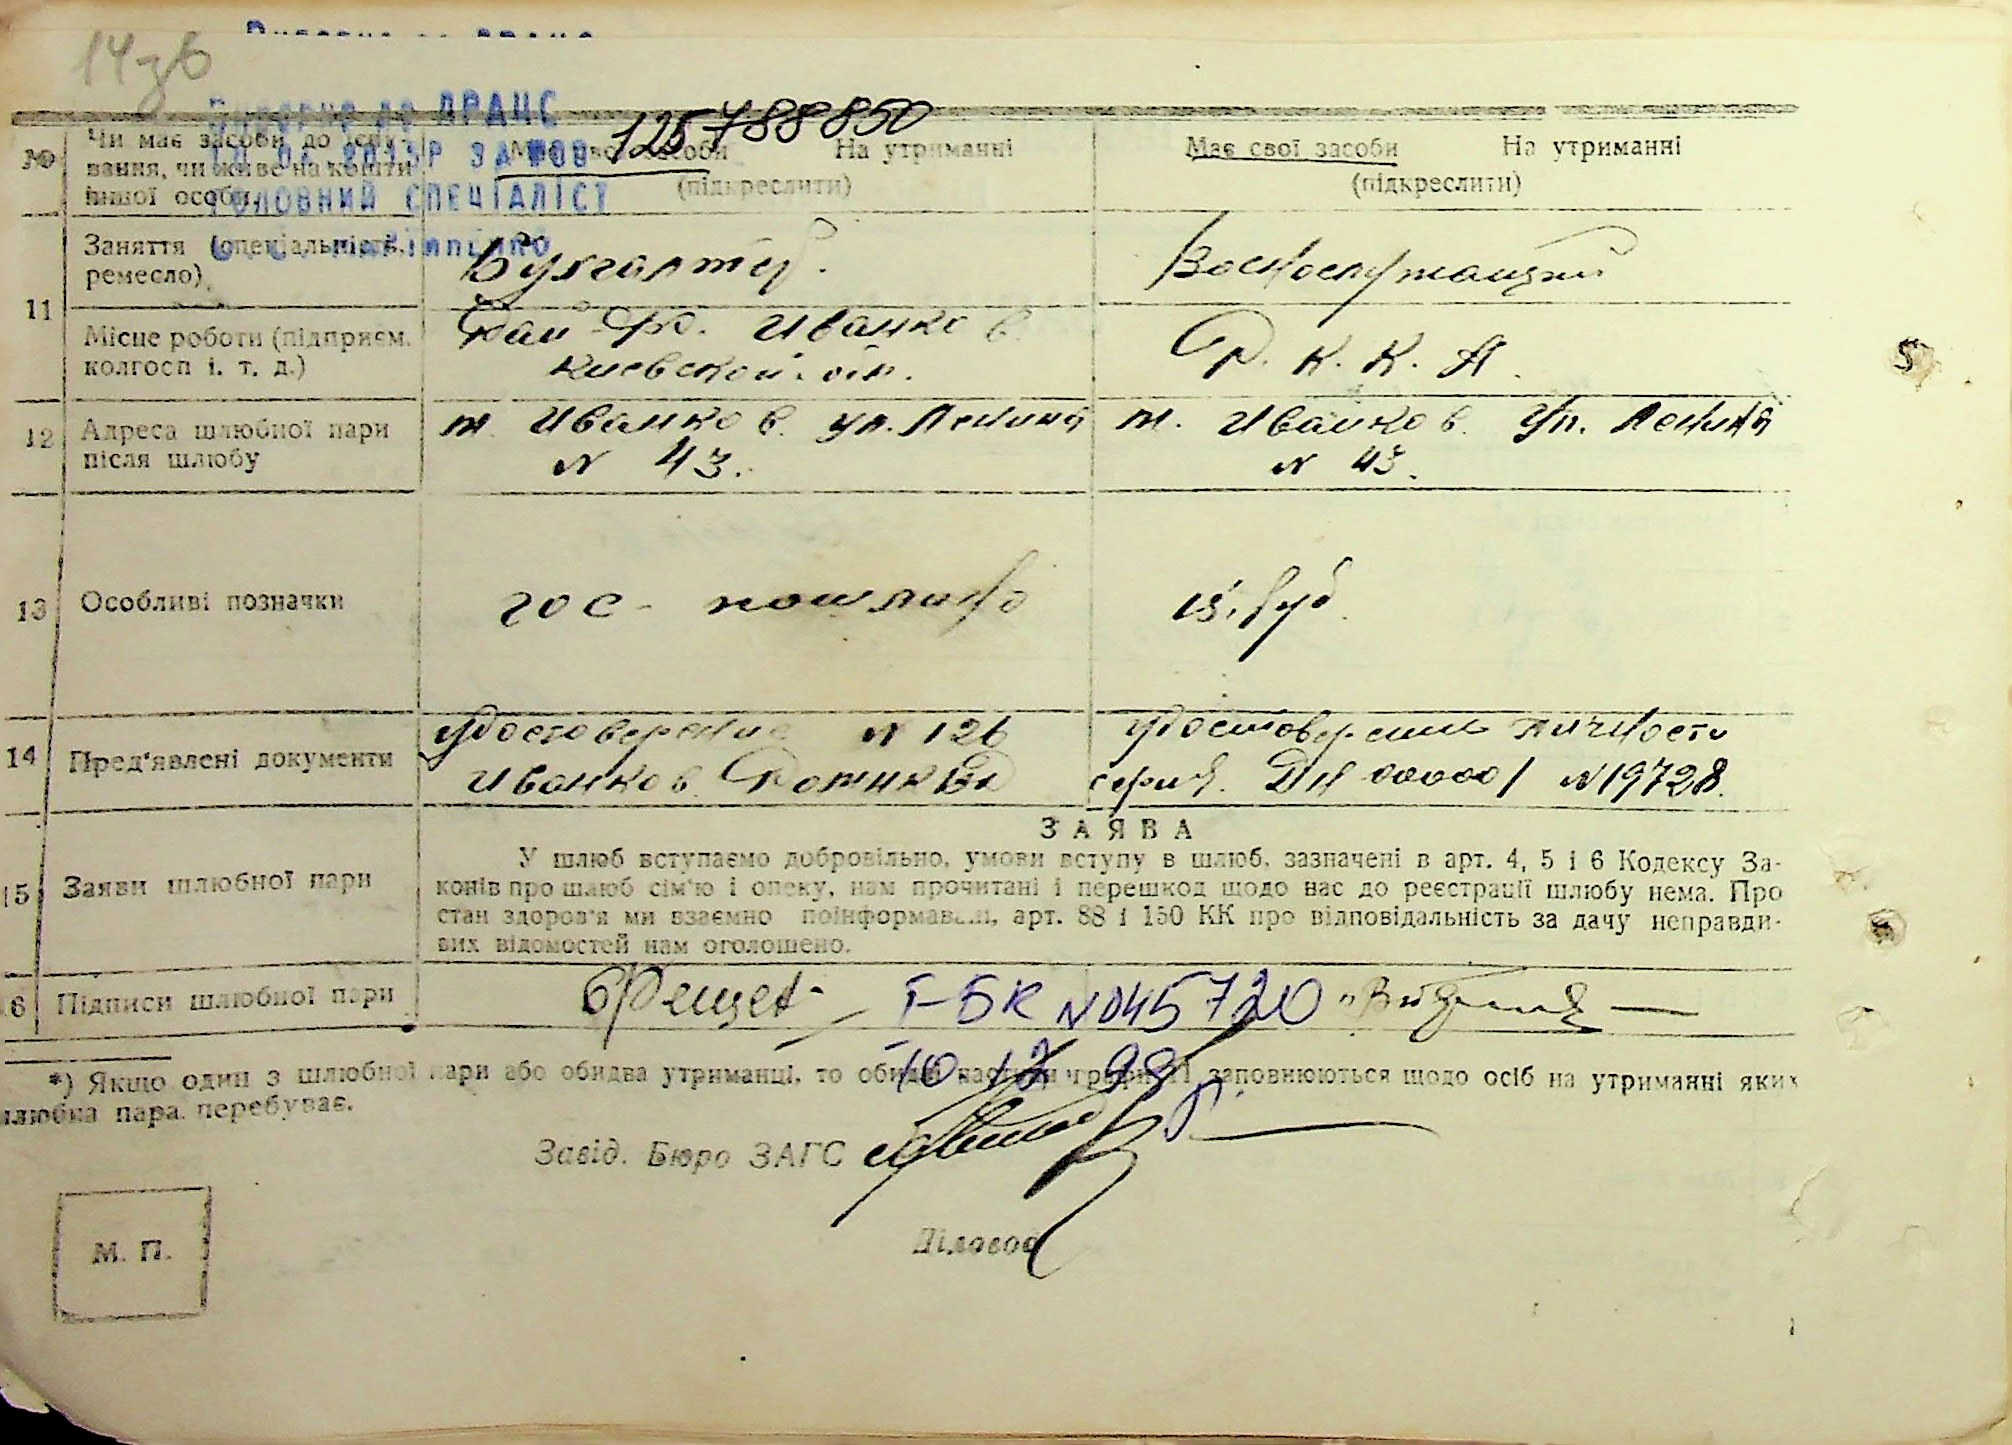 14зв
Внесено до ДРАЦС
125788850
10 Чи має засоби до існу- Має свої засоби На утриманні Має свої засоби На утриманні
вання, чи живе на кошти (підкреслити) (підкреслити)
іншої особи
ГОЛОВНИЙ СПЕЦІАЛІСТ
11 Заняття (спеціальність, Бухгалтер. Военослужащий
ремесло)
Місце роботи (підприєм. Рай Фо. Иванков Р. К. К. А.
колгосп і. т. д.) Киевской обл.
12 Адреса шлюбної пари м. Иванков. ул. Ленина м. Иванков. Ул. Ленина
після шлюбу N 43. N 43.
13 Особливі позначки гос- пошлина 15. руб.
14 Пред'явлені документи удостоверение N 126 удостоверении личности
Иванков серия. ДН 000001 N 19728.
ЗАЯВА
15 Заяви шлюбної пари У шлюб вступаємо добровільно, умови вступу в шлюб, зазначені в арт. 4, 5 і 6 Кодексу За-
конів про шлюб сім'ю і опеку, нам прочитані і перешкод щодо нас до реєстрації шлюбу нема. Про
стан здоров'я ми взаємно поінформовані, арт. 88 і 150 КК про відповідальність за дачу неправди-
вих відомостей нам оголошено.
16 Підписи шлюбної пари I-БК N 045720
*) Якщо один з шлюбної пари або обидва утриманці, то обидві заповнюються щодо осіб на утриманні яких
шлюбна пара перебуває.
Завід. Бюро ЗАГС
Діловод
М. П.